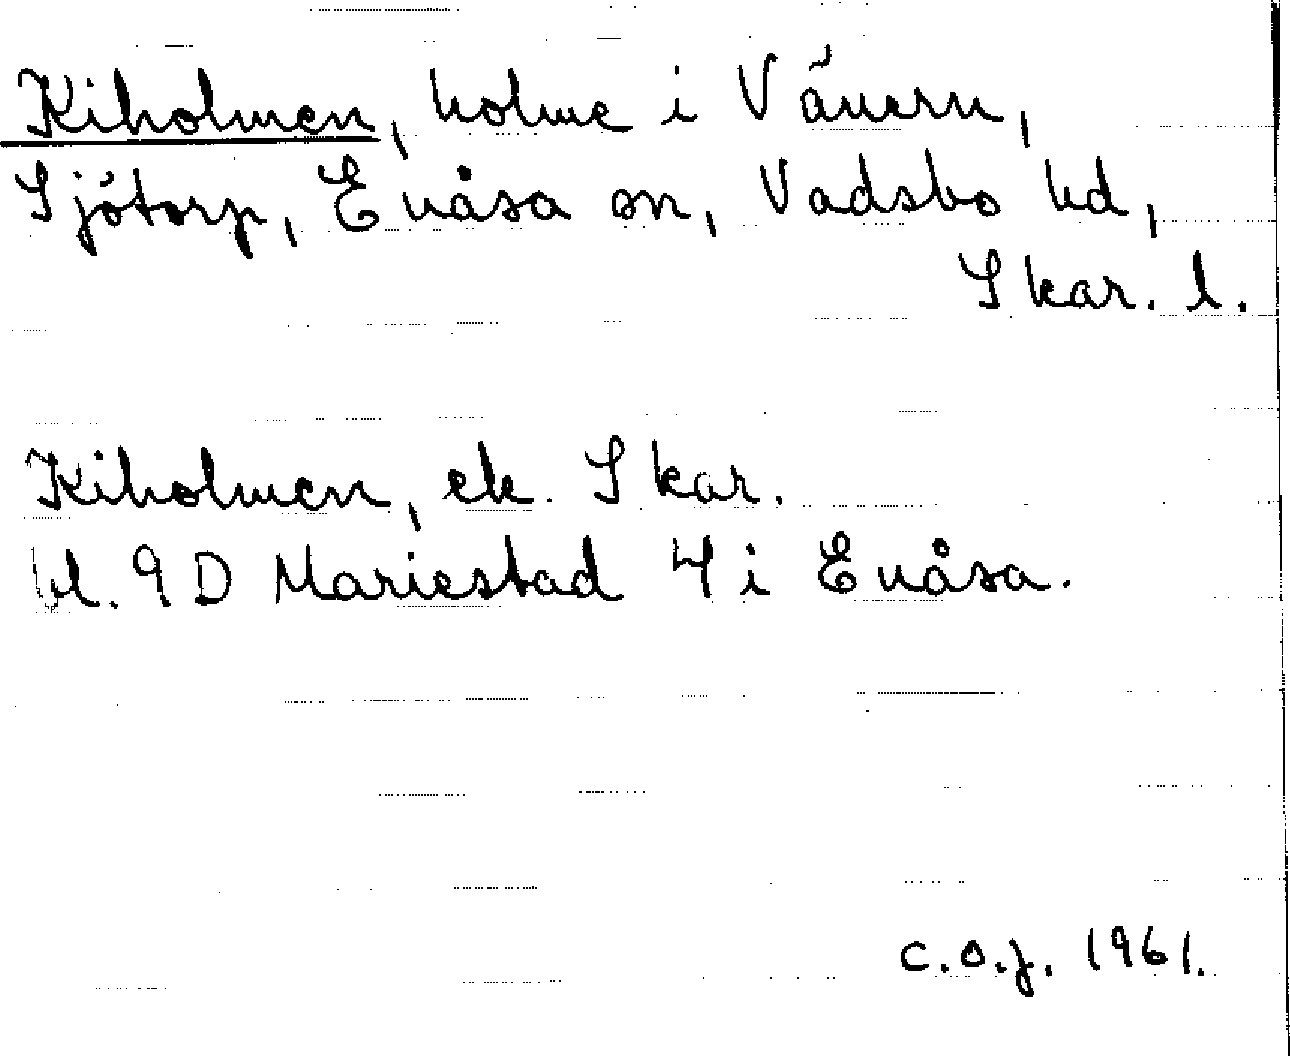 Kiholmen, holme i Vänern,
Sjötorp, Enåsa sn, Vadsbo hd,
Skar. l.
Kiholmen, ek. Skar.
l. 9D Mariestad 4 i Enåsa.
C.O.J. 1961.